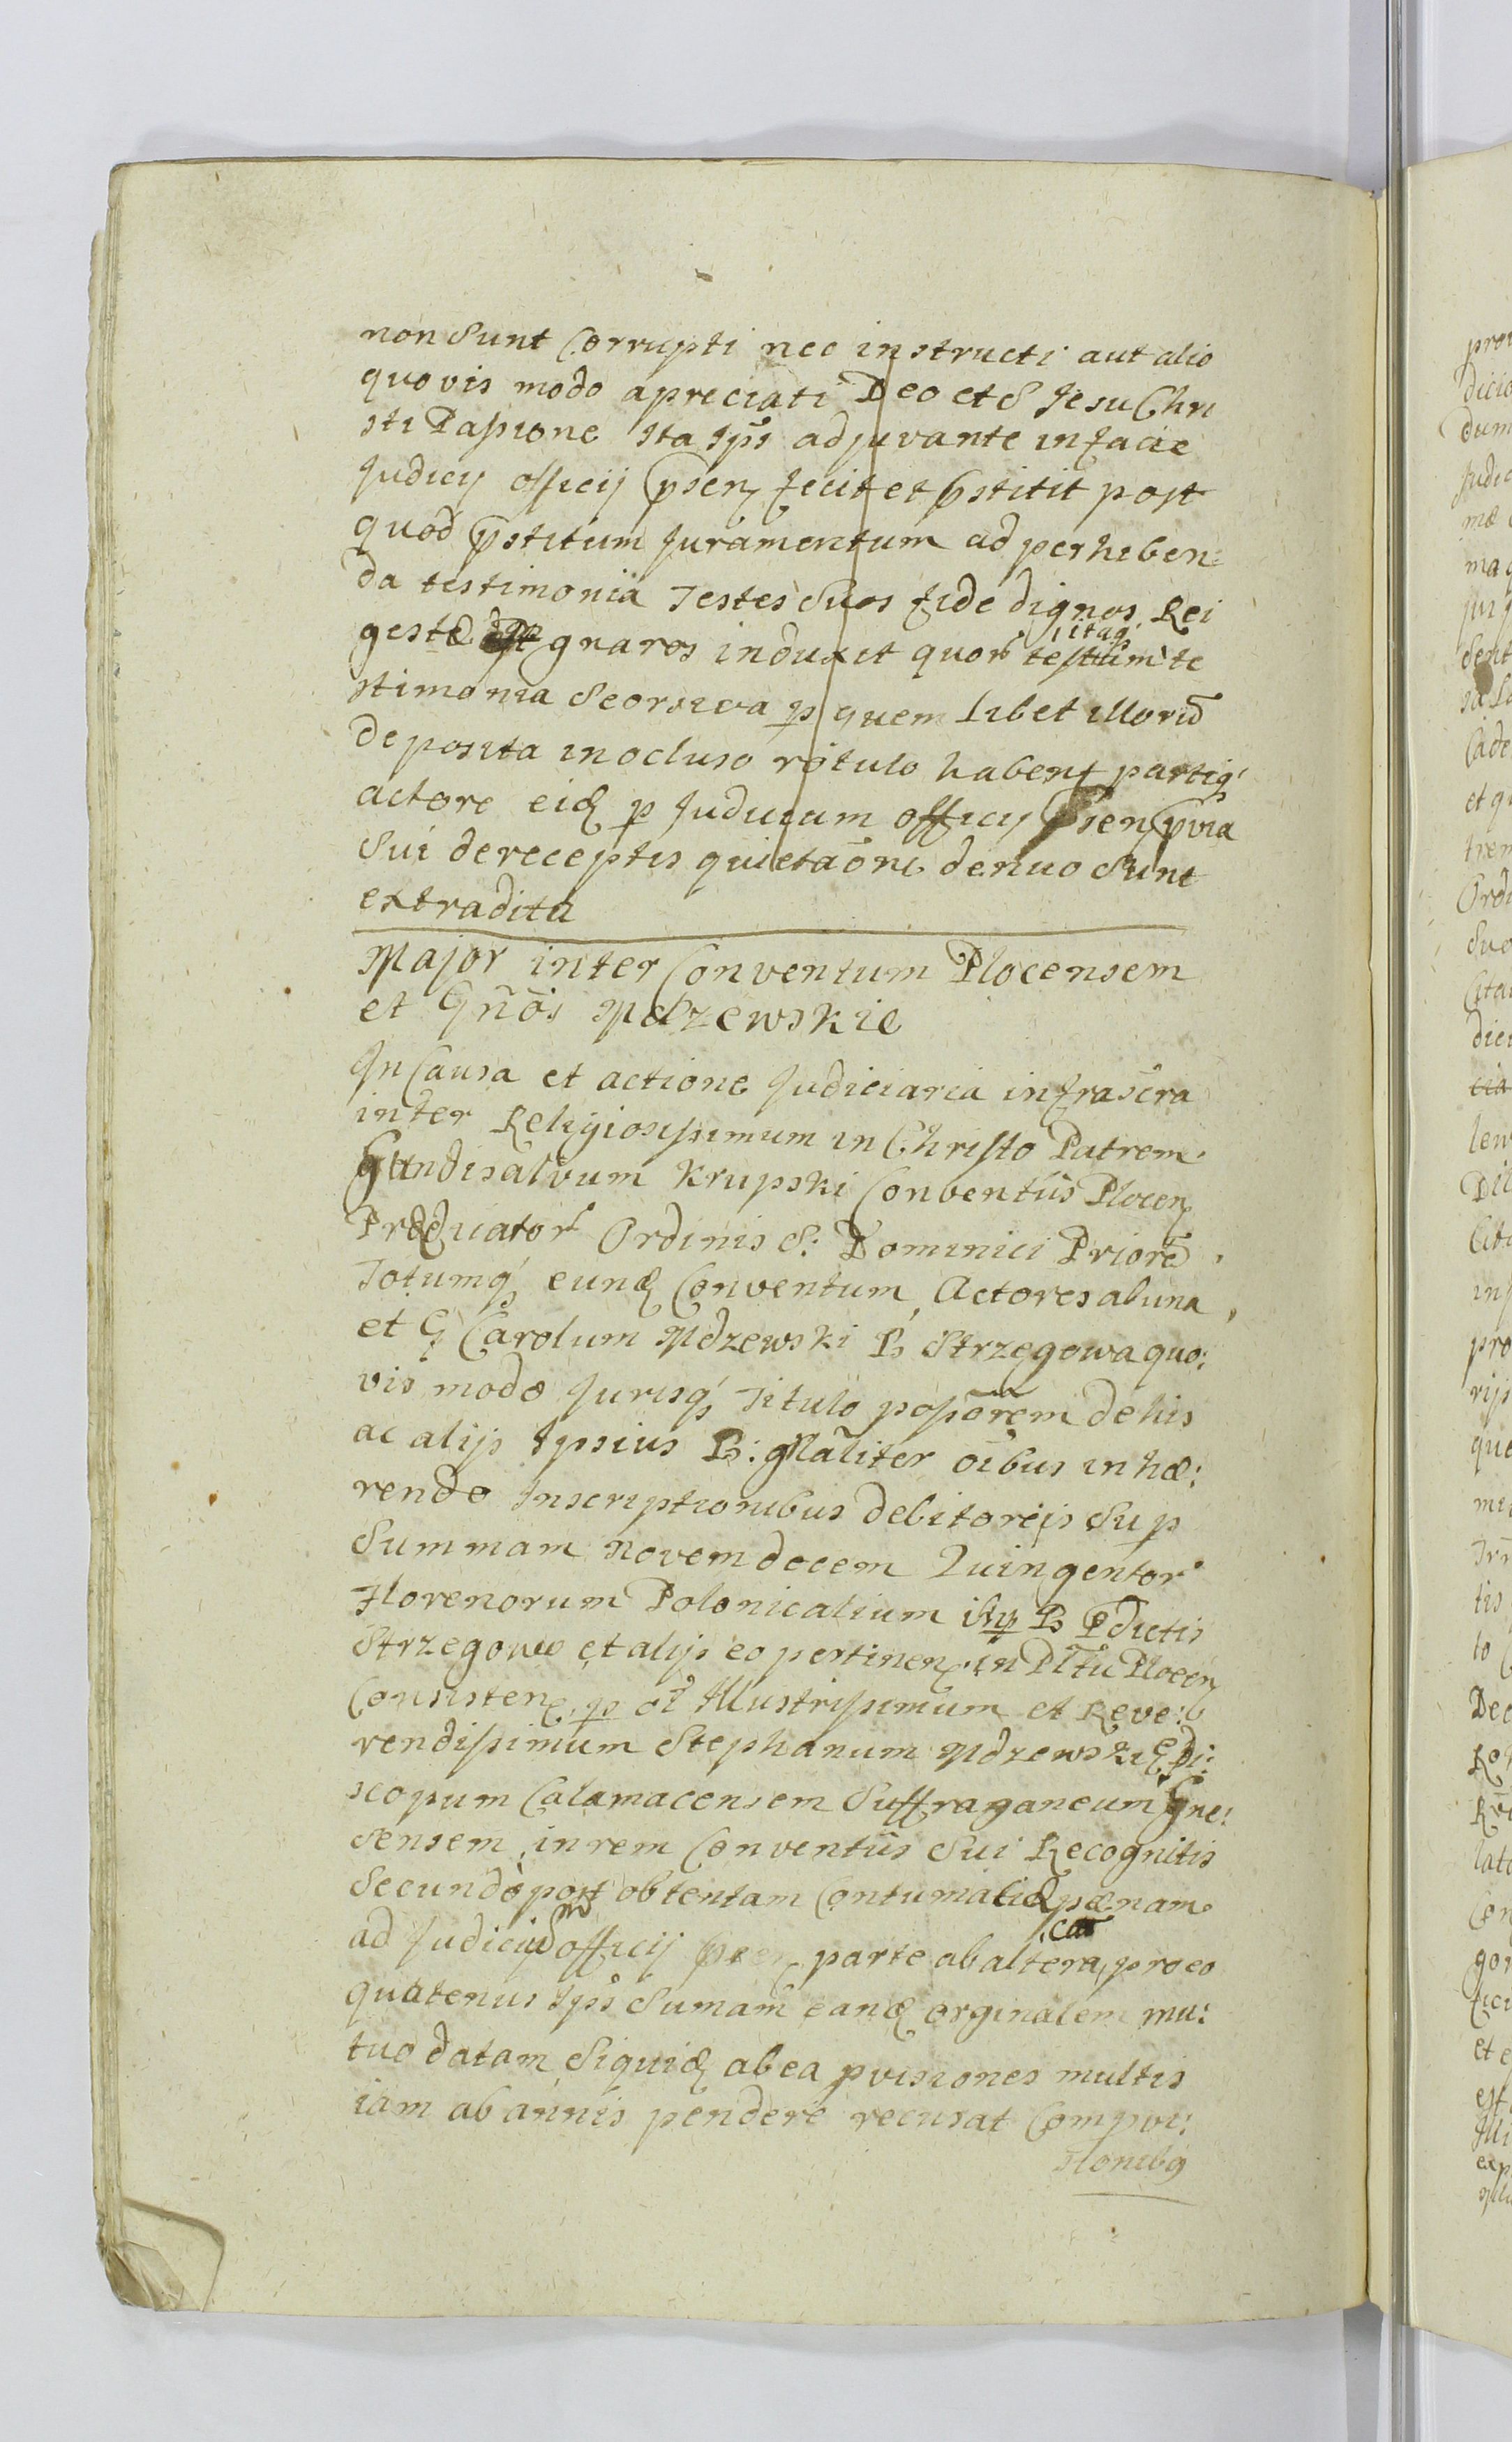 non Sunt Corrupti nec instructi aut alio
quovis modo apreciati Deo et S Jesu Chri
sti Passione Ita Ips̃ adjuvante in facie
Judicij officij p̃sen fecit et p̃stitit post
quod p̃stitum Juramentum ad perhiben:
da testimonia Testes Suos fide dignos Rei
gestæ gnaros induxit quor̃ itaq testium te
stimonia Seorsiva p quem libet illorũ
deposita in ocluso rotulo habent partiq'
actore eid p Judicium officij p̃sen p̃via
Sui de receptis quietaõne denuo Sunt
extradita
Major inter Conventum Plocensem
et Gñõs Mdzewskie
In Causa et actione Judiciaria infrascra
inter Religiosissimum in Christo Patrem
Gundisalvum Krupski Conventûs Plocen
Prædicator Ordinis S: Dominici Priorẽ
Totumq' eund Conventum Actores ab una,
et G Carolum Mdzewski B Strzegowa quo:
vis modo Jurisq' Titulo possõrẽm de his
ac alijs Ipsius B: gñaliter oĩbus inhæ:
rendo Inscriptionibus debitorijs Sup
Summam Novem decem Quingentor
Florenorum Polonicalium Sup B Pdictis
Strzegowo et alijs eo pertinen in Pl̃tu Plocen
Consisten p ol Illustrissimum et Reve:
rendissimum Stephanum Mdzewski Epi:
scopum Calamacensem Suffraganeum Gne:
sensem in rem Conventûs Sui Recognitis
Secundò post obtentam Contumaciæ pænam
ad Judiciũ officij parte ab altera, pro eo
quatenus Ips̃ Sumam eand orginalem mu:
tuo datam Siquid ab ea pvisiones multis
iam ab annis pendere recusat Compor:
tionibq